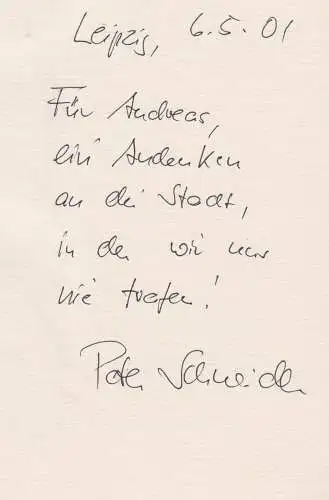 Leipzig, 6.5.01
Für Andreas,
ein Andenken
an die Stadt,
in der wir uns
nie trefen!
Peter Schneider